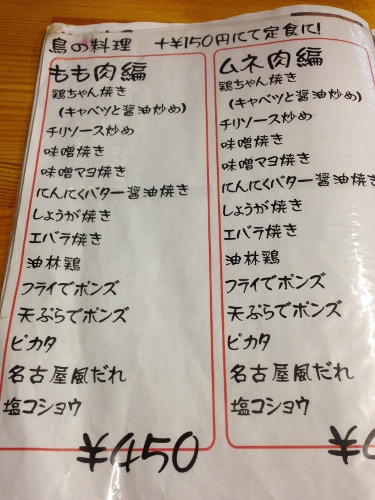 鳥の料理 +¥150円にて定食に!
もも肉編
鶏ちゃん焼き
(キャベツと醤油炒め)
チリソース炒め
味噌焼き
味噌マヨ焼き
にんにくバター醤油焼き
しょうが焼き
エバラ焼き
油林鶏
フライでポンズ
天ぷらでポンズ
ピカタ
名古屋風だれ
塩コショウ
¥450
ムネ肉編
鶏ちゃん焼き
(キャベツと醤油炒め)
チリソース炒め
味噌焼き
味噌マヨ焼き
にんにくバター醤油焼き
しょうが焼き
エバラ焼き
油林鶏
フライでポンズ
天ぷらでポンズ
ピカタ
名古屋風だれ
塩コショウ
¥